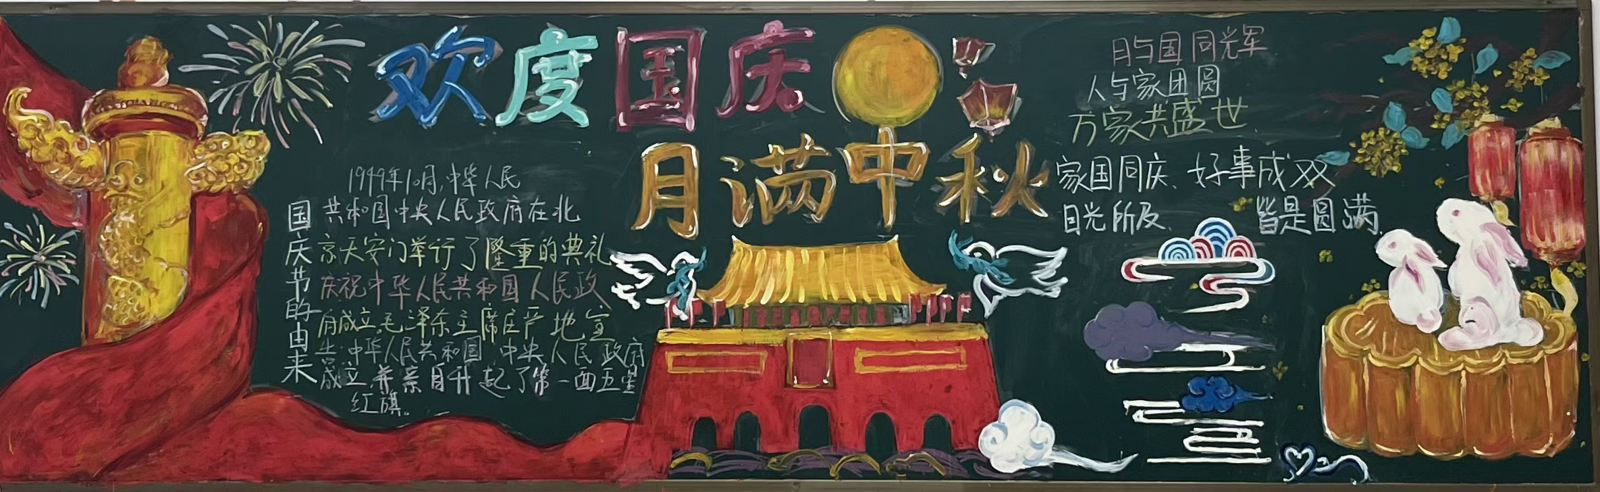 欢度国庆
月满中秋
国庆节的由来
1949年10月,中华人民
共和国中央人民政府在北
京天安门举行了隆重的典礼
庆祝中华人民共和国人民政
府成立毛泽东主席庄严地宣
告:中华人民共和国中央人民政府
成立并亲自升起了第一面五星
红旗。
月与国同光军
人与家团圆
万家共盛世
家国同庆、好事成双
目光所及、皆是圆满.